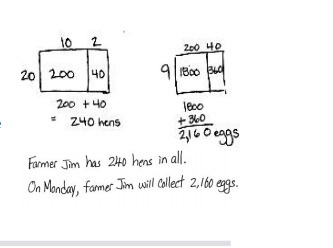 10 2
20 200 40
200 + 40
= 240 hens
200 40
9 1800 360
1800
+ 360
2,160 eggs
Farmer Jim has 240 hens in all.
On Monday, farmer Jim will collect 2,160 eggs.